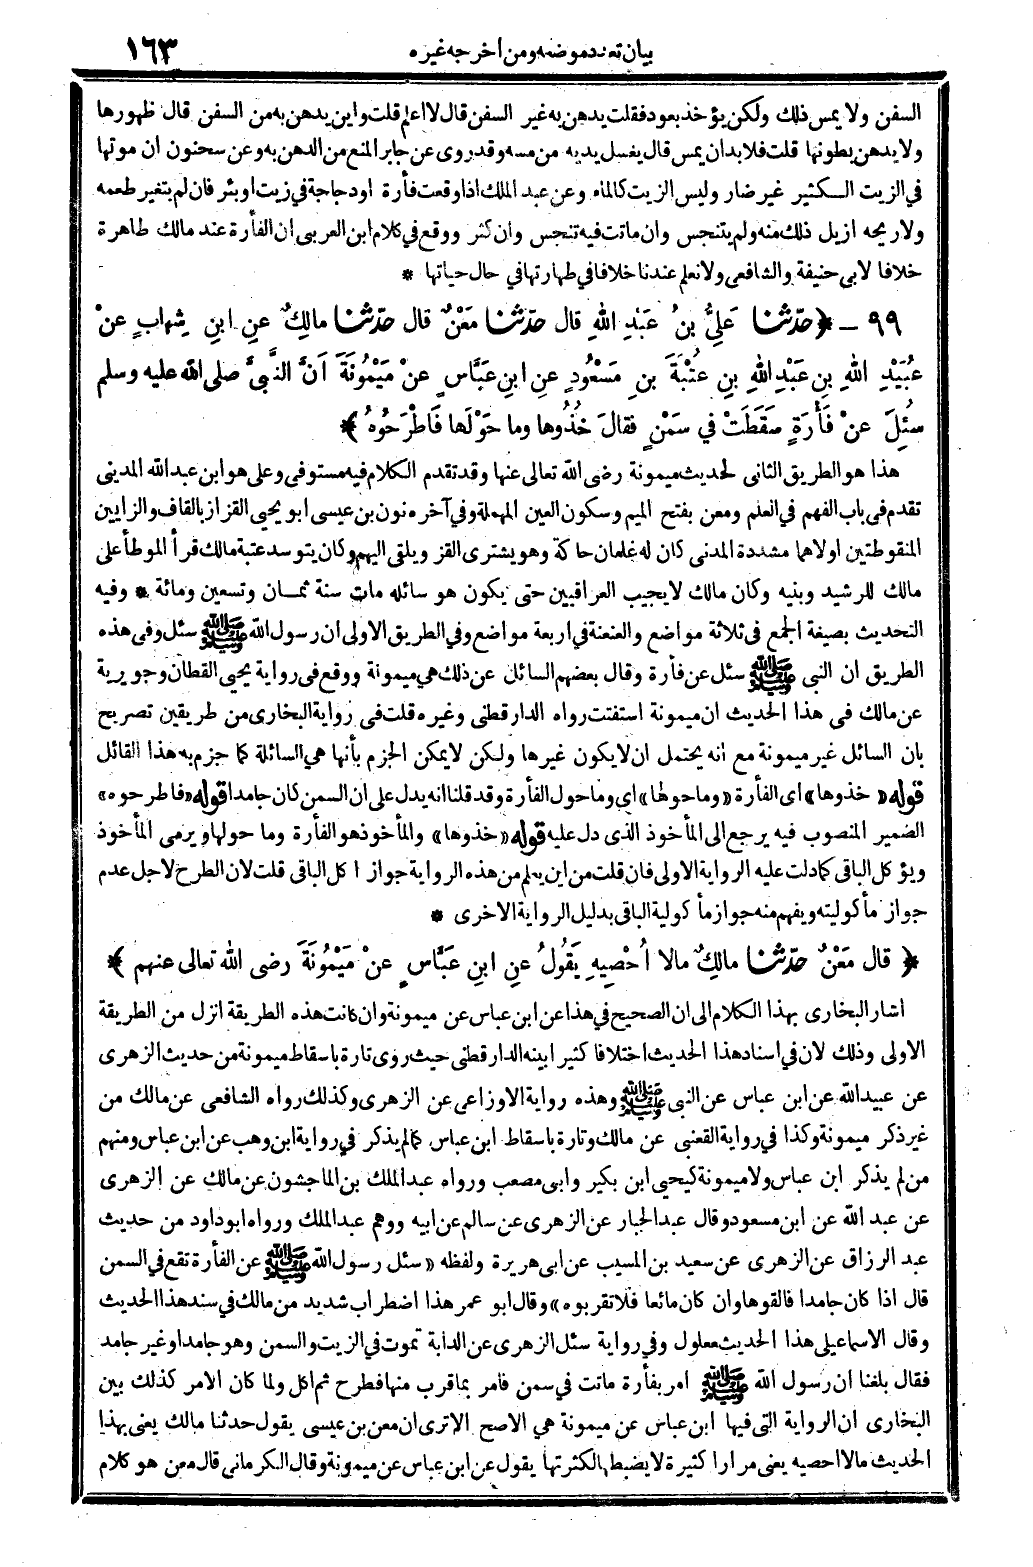 بيان تعدد موضعه ومن أخرجه غيره ١٦٣
السفن ولا يمس ذلك ولكن يؤخذ بعود فقلت يدهن به غير السفن قال لا اعلم قلت واين يدهن به من السفن قال ظهورها
ولا يدهن بطونها قلت فلابد ان يمس قال يغسل يديه من مسه وقد روى عن جابر المنع من الدهن به وعن سحنون ان موتها
في الزيت الكثير غير ضار وليس الزيت كالماء وعن عبد الملك اذا وقعت فأرة او دجاجة في زيت او بئر فان لم يتغير طعمه
ولا ريحه ازيل ذلك منه ولم يتنجس وان ماتت فيه تنجس وان كثر ووقع في كلام ابن العربى ان الفأرة عند مالك طاهرة
خلافا لابى حنيفة والشافعى ولا نعلم عندنا خلافا في طهارتها في حال حياتها *
٩٩ - ﴿ حدّثنا عَلِيُّ بنُ عَبْدِ اللهِ قال حدّثنا مَعْنٌ قال حدّثنا مالِكٌ عنِ ابنِ شِهابٍ عنْ
عُبَيْدِ اللهِ بنِ عَبْدِ اللهِ بنِ عُتْبَةَ بنِ مَسْعُودٍ عنِ ابنِ عَبَّاسٍ عنْ مَيْمُونَةَ أنَّ النَّبيَّ صلى الله عليه وسلم
سُئِلَ عنْ فَأْرَةٍ سَقَطَتْ في سَمْنٍ فقالَ خُذُوها وما حَوْلَها فَاطْرَحُوهُ ﴾
هذا هو الطريق الثانى لحديث ميمونة رضى الله تعالى عنها وقد تقدم الكلام فيه مستوفى وعلى هو ابن عبد الله المدينى
تقدم فى باب الفهم في العلم ومعن بفتح الميم وسكون العين المهملة وفي آخره نون بن عيسى ابو يحيى القزاز بالقاف والزايين
المنقوطتين اولاهما مشددة المدنى كان له غلمان حاكة وهو يشترى القز ويلقى اليهم وكان يتوسد عتبة مالك قرأ الموطأ على
مالك للرشيد وبنيه وكان مالك لا يجيب العراقيين حتى يكون هو سائله مات سنة ثمان وتسعين ومائة * وفيه
التحديث بصيغة الجمع فى ثلاثة مواضع والعنعنة في اربعة مواضع وفي الطريق الاولى ان رسول الله ﷺ سئل وفى هذه
الطريق ان النبى ﷺ سئل عن فأرة وقال بعضهم السائل عن ذلك هي ميمونة ووقع فى رواية يحيى القطان وجويرية
عن مالك فى هذا الحديث ان ميمونة استفتت رواه الدارقطنى وغيره قلت فى رواية البخارى من طريقين تصريح
بان السائل غير ميمونة مع انه يحتمل ان لا يكون غيرها ولكن لا يمكن الجزم بأنها هي السائلة كما جزم به هذا القائل
قوله «خذوها» اى الفأرة «وما حولها» اى وما حول الفأرة وقد قلنا انه يدل على ان السمن كان جامدا قوله «فاطرحوه»
الضمير المنصوب فيه يرجع الى المأخوذ الذى دل عليه قوله «خذوها» والمأخوذ هو الفأرة وما حولها ويرمى المأخوذ
ويؤكل الباقى كما دلت عليه الرواية الاولى فان قلت من اين يعلم من هذه الرواية جواز اكل الباقى قلت لان الطرح لاجل عدم
جواز مأكوليته ويفهم منه جواز مأكولية الباقى بدليل الرواية الاخرى *
﴿ قال مَعْنٌ حدّثنا مالِكٌ مالا أُحْصِيهِ يَقُولُ عنِ ابنِ عَبَّاسٍ عنْ مَيْمُونَةَ رضى الله تعالى عنهم ﴾
اشار البخارى بهذا الكلام الى ان الصحيح في هذا عن ابن عباس عن ميمونة وان كانت هذه الطريقة انزل من الطريقة
الاولى وذلك لان في اسناد هذا الحديث اختلافا كثيرا بينه الدارقطنى حيث روى تارة باسقاط ميمونة من حديث الزهرى
عن عبيد الله عن ابن عباس عن النبى ﷺ وهذه رواية الاوزاعى عن الزهرى وكذلك رواه الشافعى عن مالك من
غير ذكر ميمونة وكذا في رواية القعنبى عن مالك وتارة باسقاط ابن عباس كما لم يذكر في رواية ابن وهب عن ابن عباس ومنهم
من لم يذكر ابن عباس ولا ميمونة كيحيى ابن بكير وابى مصعب ورواه عبد الملك بن الماجشون عن مالك عن الزهرى
عن عبد الله عن ابن مسعود وقال عبد الجبار عن الزهرى عن سالم عن ابيه ووهم عبد الملك ورواه ابو داود من حديث
عبد الرزاق عن الزهرى عن سعيد بن المسيب عن ابى هريرة ولفظه «سئل رسول الله ﷺ عن الفأرة تقع في السمن
قال اذا كان جامدا فالقوها وان كان مائعا فلا تقربوه» وقال ابو عمر هذا اضطراب شديد من مالك في سند هذا الحديث
وقال الاسماعيلى هذا الحديث معلول وفي رواية سئل الزهرى عن الدابة تموت في الزيت والسمن وهو جامد او غير جامد
فقال بلغنا ان رسول الله ﷺ امر بفأرة ماتت في سمن فامر بما قرب منها فطرح ثم اكل ولما كان الامر كذلك بين
البخارى ان الرواية التى فيها ابن عباس عن ميمونة هي الاصح الا ترى ان معن بن عيسى يقول حدثنا مالك يعنى بهذا
الحديث مالا احصيه يعنى مرارا كثيرة لا يضبطها لكثرتها يقول عن ابن عباس عن ميمونة وقال الكرمانى قال معن هو كلام